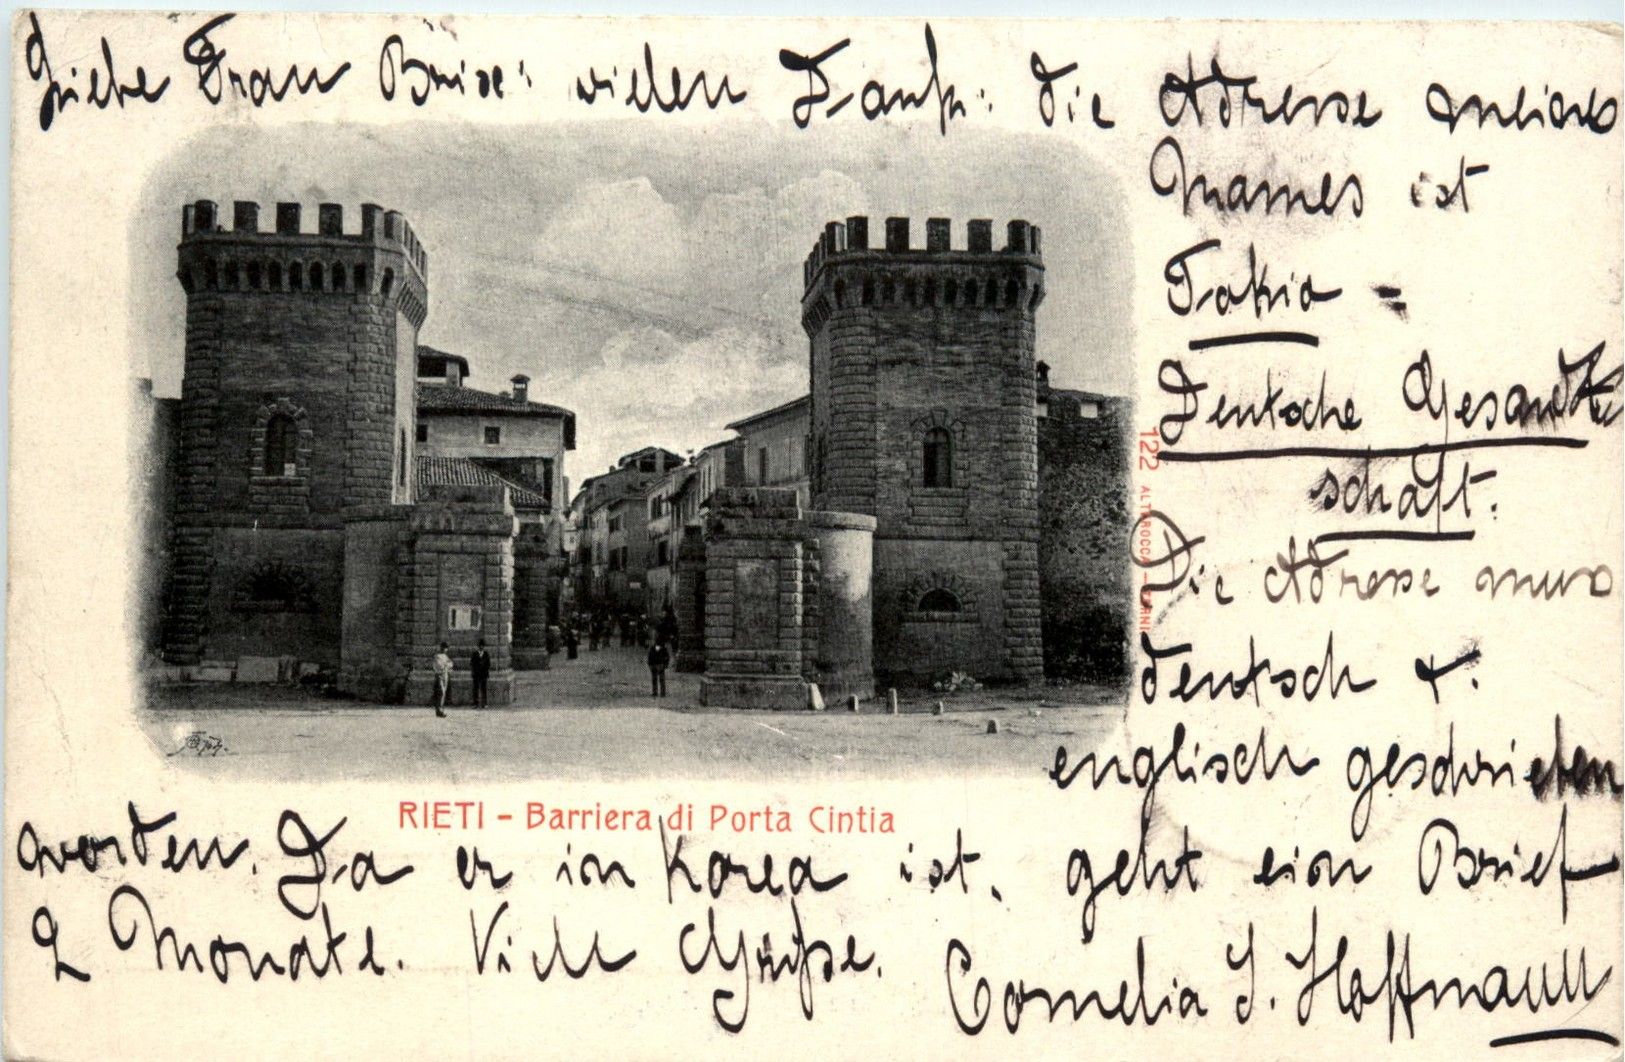 Liebe Frau Brise: vielen Dank: die Adresse meines
Mannes ist
Tokio -
Deutsche Gesandt
schaft.
Die Adresse muss
deutsch &.
englisch geschrieben
worden. Da er in Korea ist, geht ein Brief
2 Monate. Viele Grüsse.
Cornelia J. Hoffmann
RIETI - Barriera di Porta Cintia
122 ALTEROCCA - TERNI